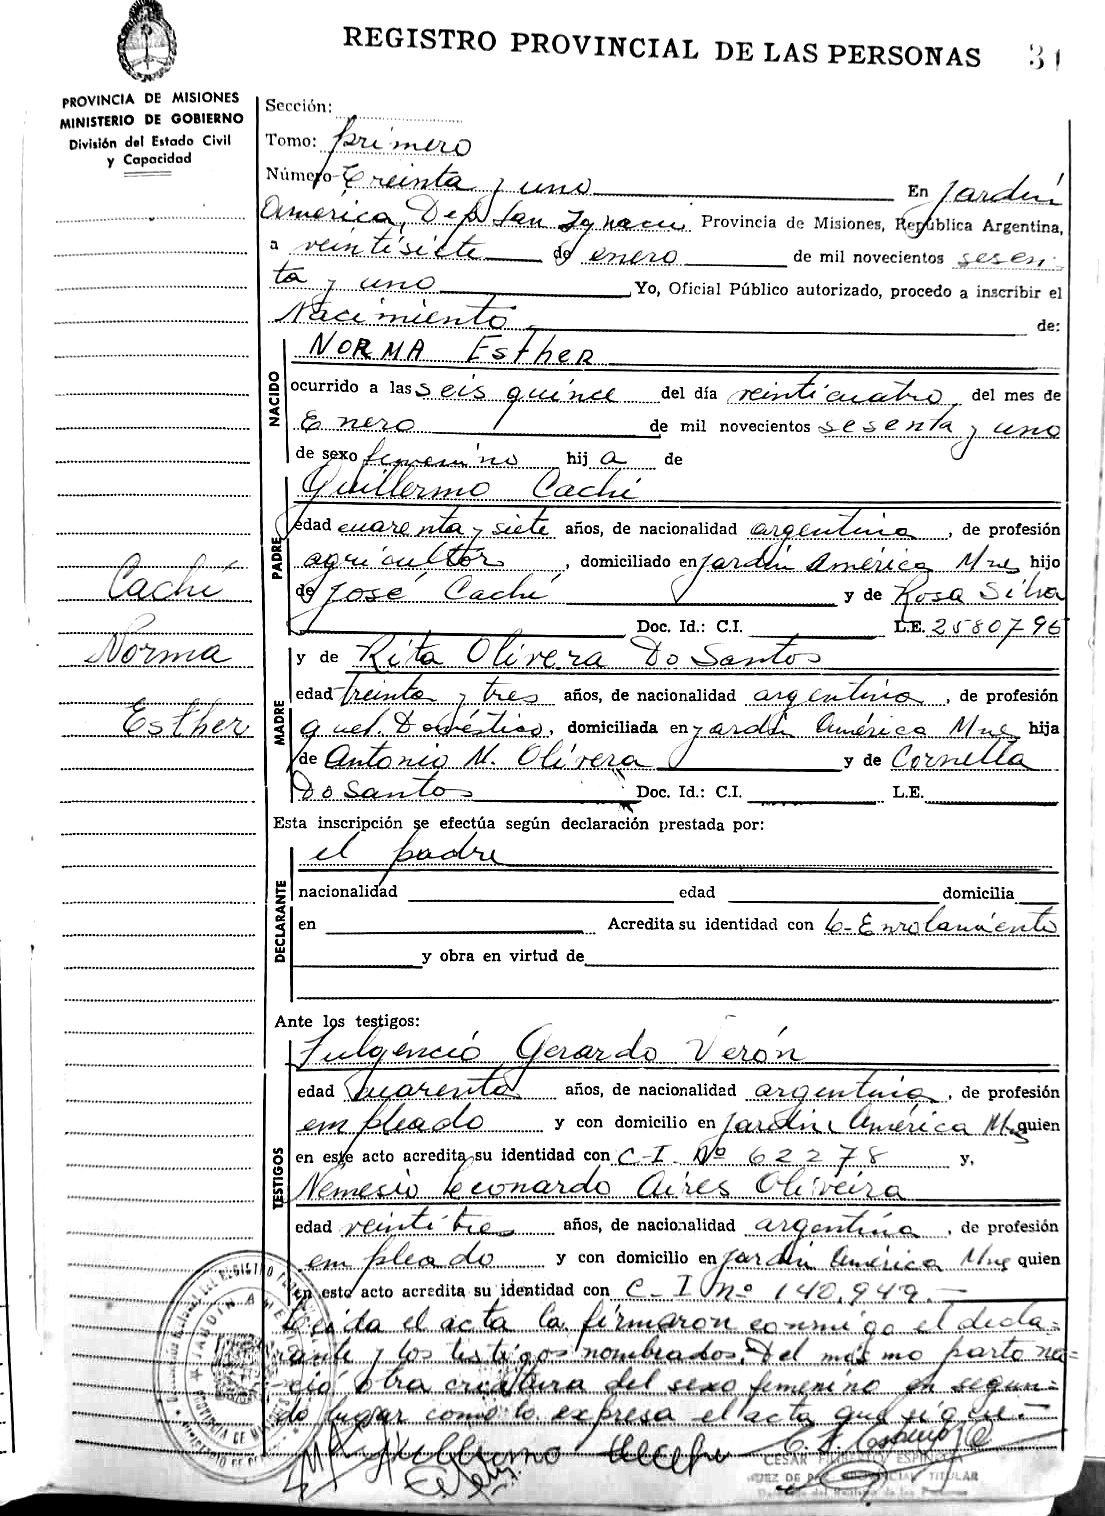 REGISTRO PROVINCIAL DE LAS PERSONAS 31
PROVINCIA DE MISIONES
MINISTERIO DE GOBIERNO
División del Estado Civil
y Capacidad
Sección:
Tomo: primero
Número Treinta y uno En Jardín
América, Dep. San Ignacio Provincia de Misiones, República Argentina,
a veintisiete de enero de mil novecientos sesen-
ta y uno Yo, Oficial Público autorizado, procedo a inscribir el
Nacimiento de:
NACIDO
NORMA Esther
ocurrido a las seis quince del día veinticuatro del mes de
Enero de mil novecientos sesenta y uno
de sexo femenino hij a de
PADRE
Guillermo Cachí
edad cuarenta y siete años, de nacionalidad argentina, de profesión
agricultor, domiciliado en Jardín América Mnes hijo
de José Cachí y de Rosa Silva
Doc. Id.: C.I. L.E. 2580796
Cachí
Norma
Esther
MADRE
y de Rita Olivera Do Santos
edad treinta y tres años, de nacionalidad argentina, de profesión
quel. Doméstico, domiciliada en Jardín América Mnes hija
de Antonio M. Olivera y de Cornella
Do Santos Doc. Id.: C.I. L.E.
Esta inscripción se efectúa según declaración prestada por:
DECLARANTE
el padre
nacionalidad edad domicilia
en Acredita su identidad con L. Enrolamiento
y obra en virtud de
Ante los testigos:
TESTIGOS
Fulgencio Gerardo Verón
edad cuarenta años, de nacionalidad argentina, de profesión
empleado y con domicilio en Jardín América Mns quien
en este acto acredita su identidad con C.I. Nº 62278 y,
Nemesio Leonardo Aires Oliveira
edad veintitres años, de nacionalidad argentina, de profesión
empleado y con domicilio en Jardín América Mns quien
en este acto acredita su identidad con C.I Nº 140.949.-
Leida el acta la firmaron conmigo el decla-
rante y los testigos nombrados. Del mismo parto na=
ció otra criatura del sexo femenino en segun-
do lugar como lo expresa el acta que sigue.-
Guillermo
CESAR FILIBERTO ESPINOZA
JUEZ DE PAZ PROVINCIAL TITULAR